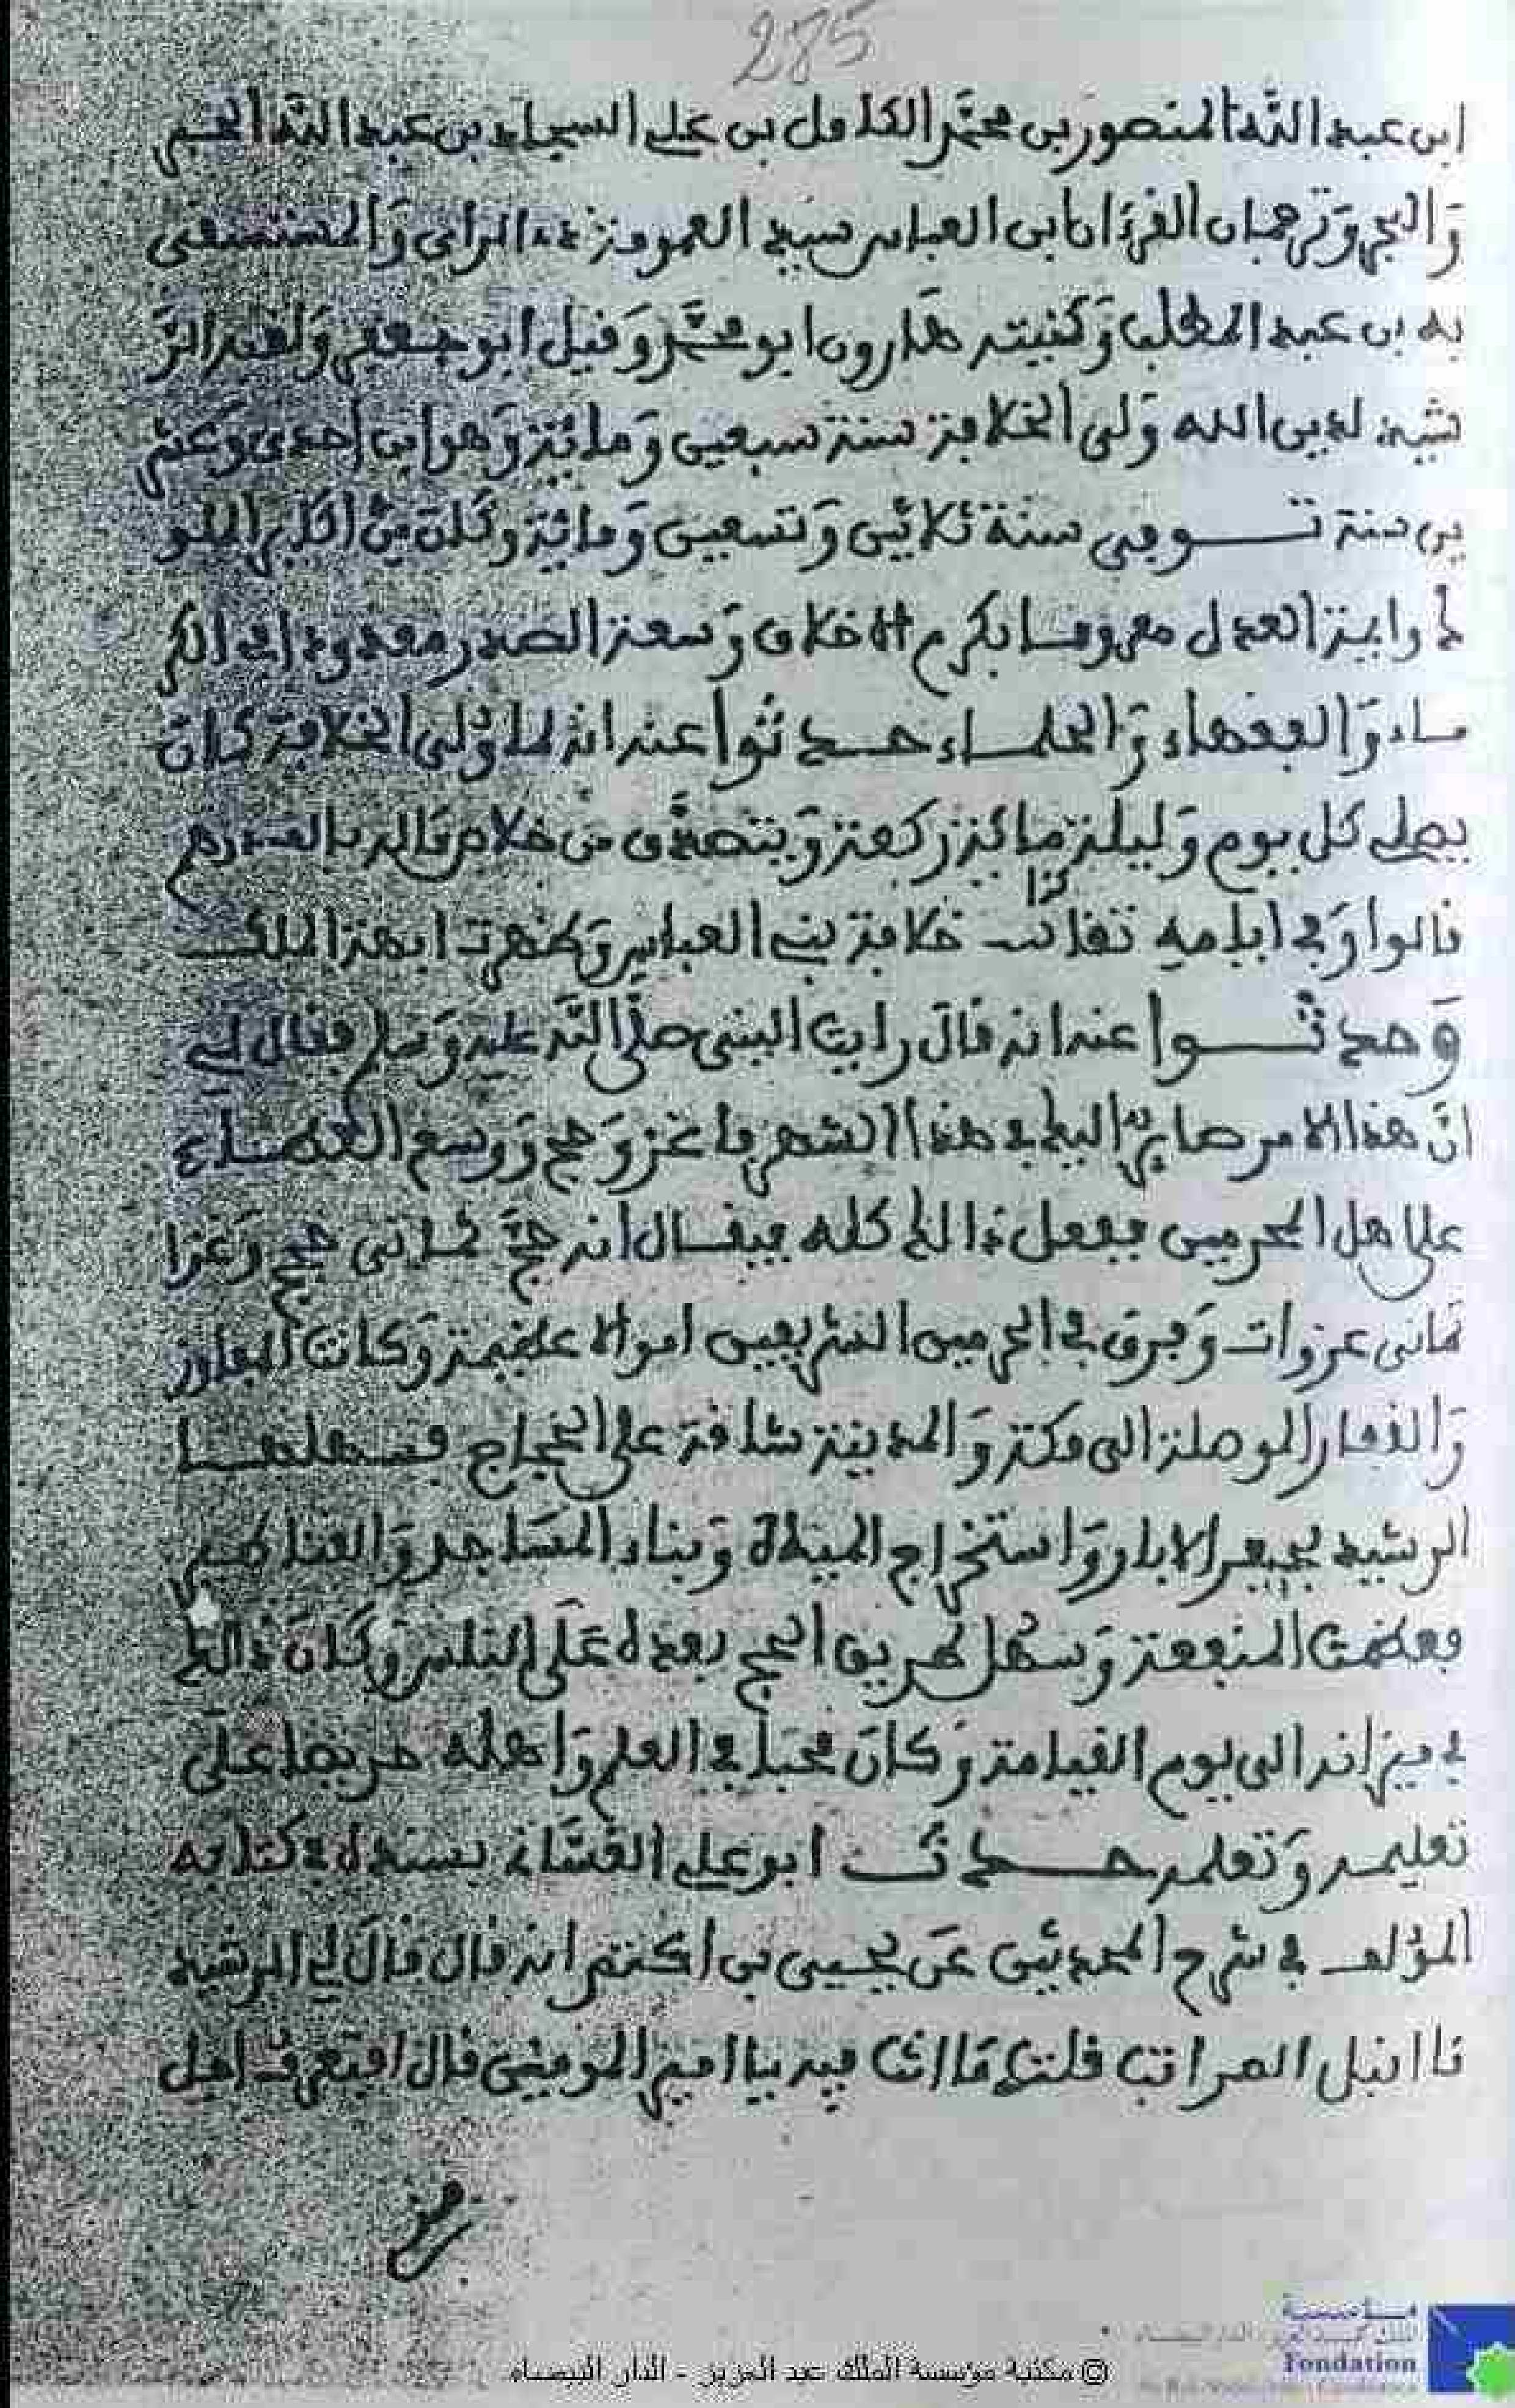 285
ابن عبد الله المنصور بن محمد الكامل بن علي السجاد بن عبد الله الحبر
والبحر وترجمان القرءان ابن العباس سيد العمومة ذا الراي والمستسقى
به بن عبد المطلب وكنيته هارون ابو محمد وقيل ابو جعفر ولقبه الر
شيد لدين الله ولى الخلافة سنة سبعين ومائة وهو ابن احدى وعشر
ين سنة توفي سنة ثلاثين وتسعين ومائة وكان من اكابر الملو
ط وابية العدل معروفا بكرم الاخلاق وسعة الصدر معدودا في الكر
ماء والفقهاء والحلماء حدثوا عنه انه لما ولى الخلافة كان
يصلي كل يوم وليلة مائة ركعة ويتصدق من خلاص ماله بالف درهم
قالوا وفي ايامه تفاتت كذا خلافة بني العباس وظهرت ابهة الملك
وحدثوا عنه انه قال رايت النبي صلى الله عليه وسلم فقال لي
ان هذا الامر صاير اليك في هذا الشهر فاغز وحج ووسع العطاء
على اهل الحرمين ففعل ذالك كله فيقال انه حج ثماني حجج وغزا
ثماني غزوات وفرق في الحرمين الشريفين اموالا عظيمة وكانت المفاوز
والقفار الموصلة الى مكة والمدينة شاقة على الحجاج فسهلها
الرشيد بحفر الابار واستخراج المياه وبناء المساجد والقناطر
فعظمت المنفعة وسهل طريق الحج بعده على الناس وكان ذالك
في ميزانه الى يوم القيامة وكان محبا في العلم واهله حريصا على
تعليمه وتعلمه حدث ابو علي الغساني بسنده في كتابه
المؤلف في شرح المحدثين عن يحيى بن اكتم انه قال قال لي الرشيد
ما انبل المراتب قلت ما انت فيه يا امير المومنين قال افتعرف اجل
مني
مؤسسة
Fondation
© مكتبة مؤسسة الملك عبد العزيز - الدار البيضاء